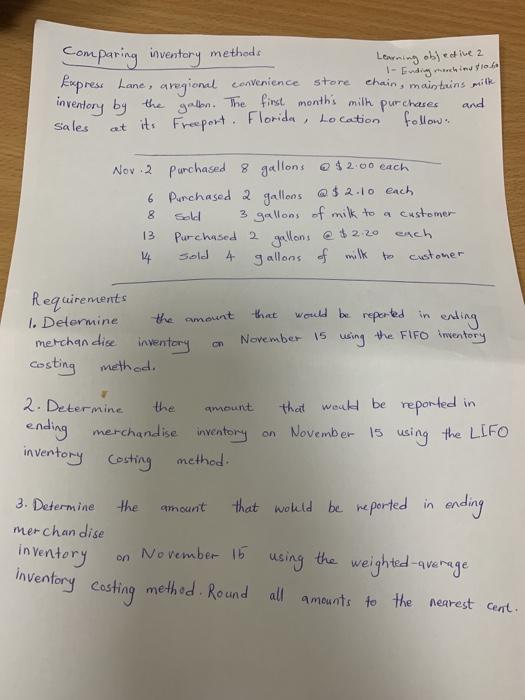 Comparing inventory methods
Learning objective 2
1- Ending merch inv $10.60
Express Lane, a regional convenience store chain, maintains milk
inventory by the gallon. The first month's milk purchases and
sales at its Freeport. Florida, Location follow:
Nov. 2 Purchased 8 gallons @ $2.00 each
6 Purchased 2 gallons @ $2.10 each
8 Sold 3 gallons of milk to a customer
13 Purchased 2 gallons @ $2.20 each
14 Sold 4 gallons of milk to customer
Requirements
1. Determine the amount that would be reported in ending
merchandise inventory on November 15 using the FIFO inventory
costing method.
2. Determine the amount that would be reported in
ending merchandise inventory on November 15 using the LIFO
inventory Costing method.
3. Determine the amount that would be reported in ending
merchandise
inventory on November 15 using the weighted-average
inventory costing method. Round all amounts to the nearest cent.